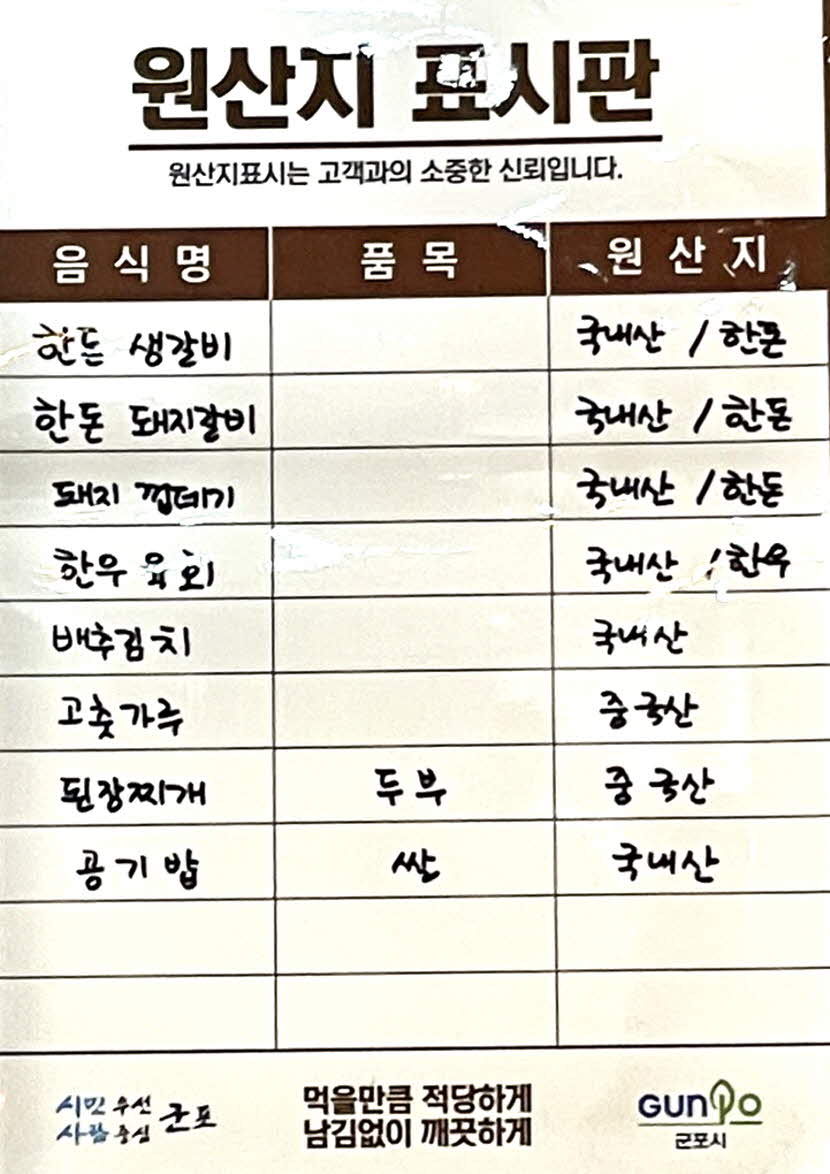 원산지 표시판
원산지표시는 고객과의 소중한 신뢰입니다.
음식명 품목 원산지
한돈 생갈비 국내산 / 한돈
한돈 돼지갈비 국내산 / 한돈
돼지 껍데기 국내산 / 한돈
한우 육회 국내산 / 한우
배추김치 국내산
고춧가루 중국산
된장찌개 두부 중국산
공기밥 쌀 국내산
시민 우선 사람 중심 군포
먹을만큼 적당하게
남김없이 깨끗하게
GUNPO
군포시